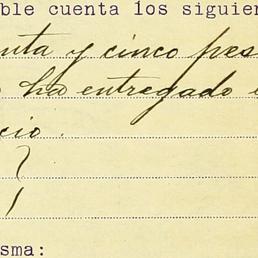 ble cuenta los siguien
nta y cinco pes
ha entregado e
cio.
sma: